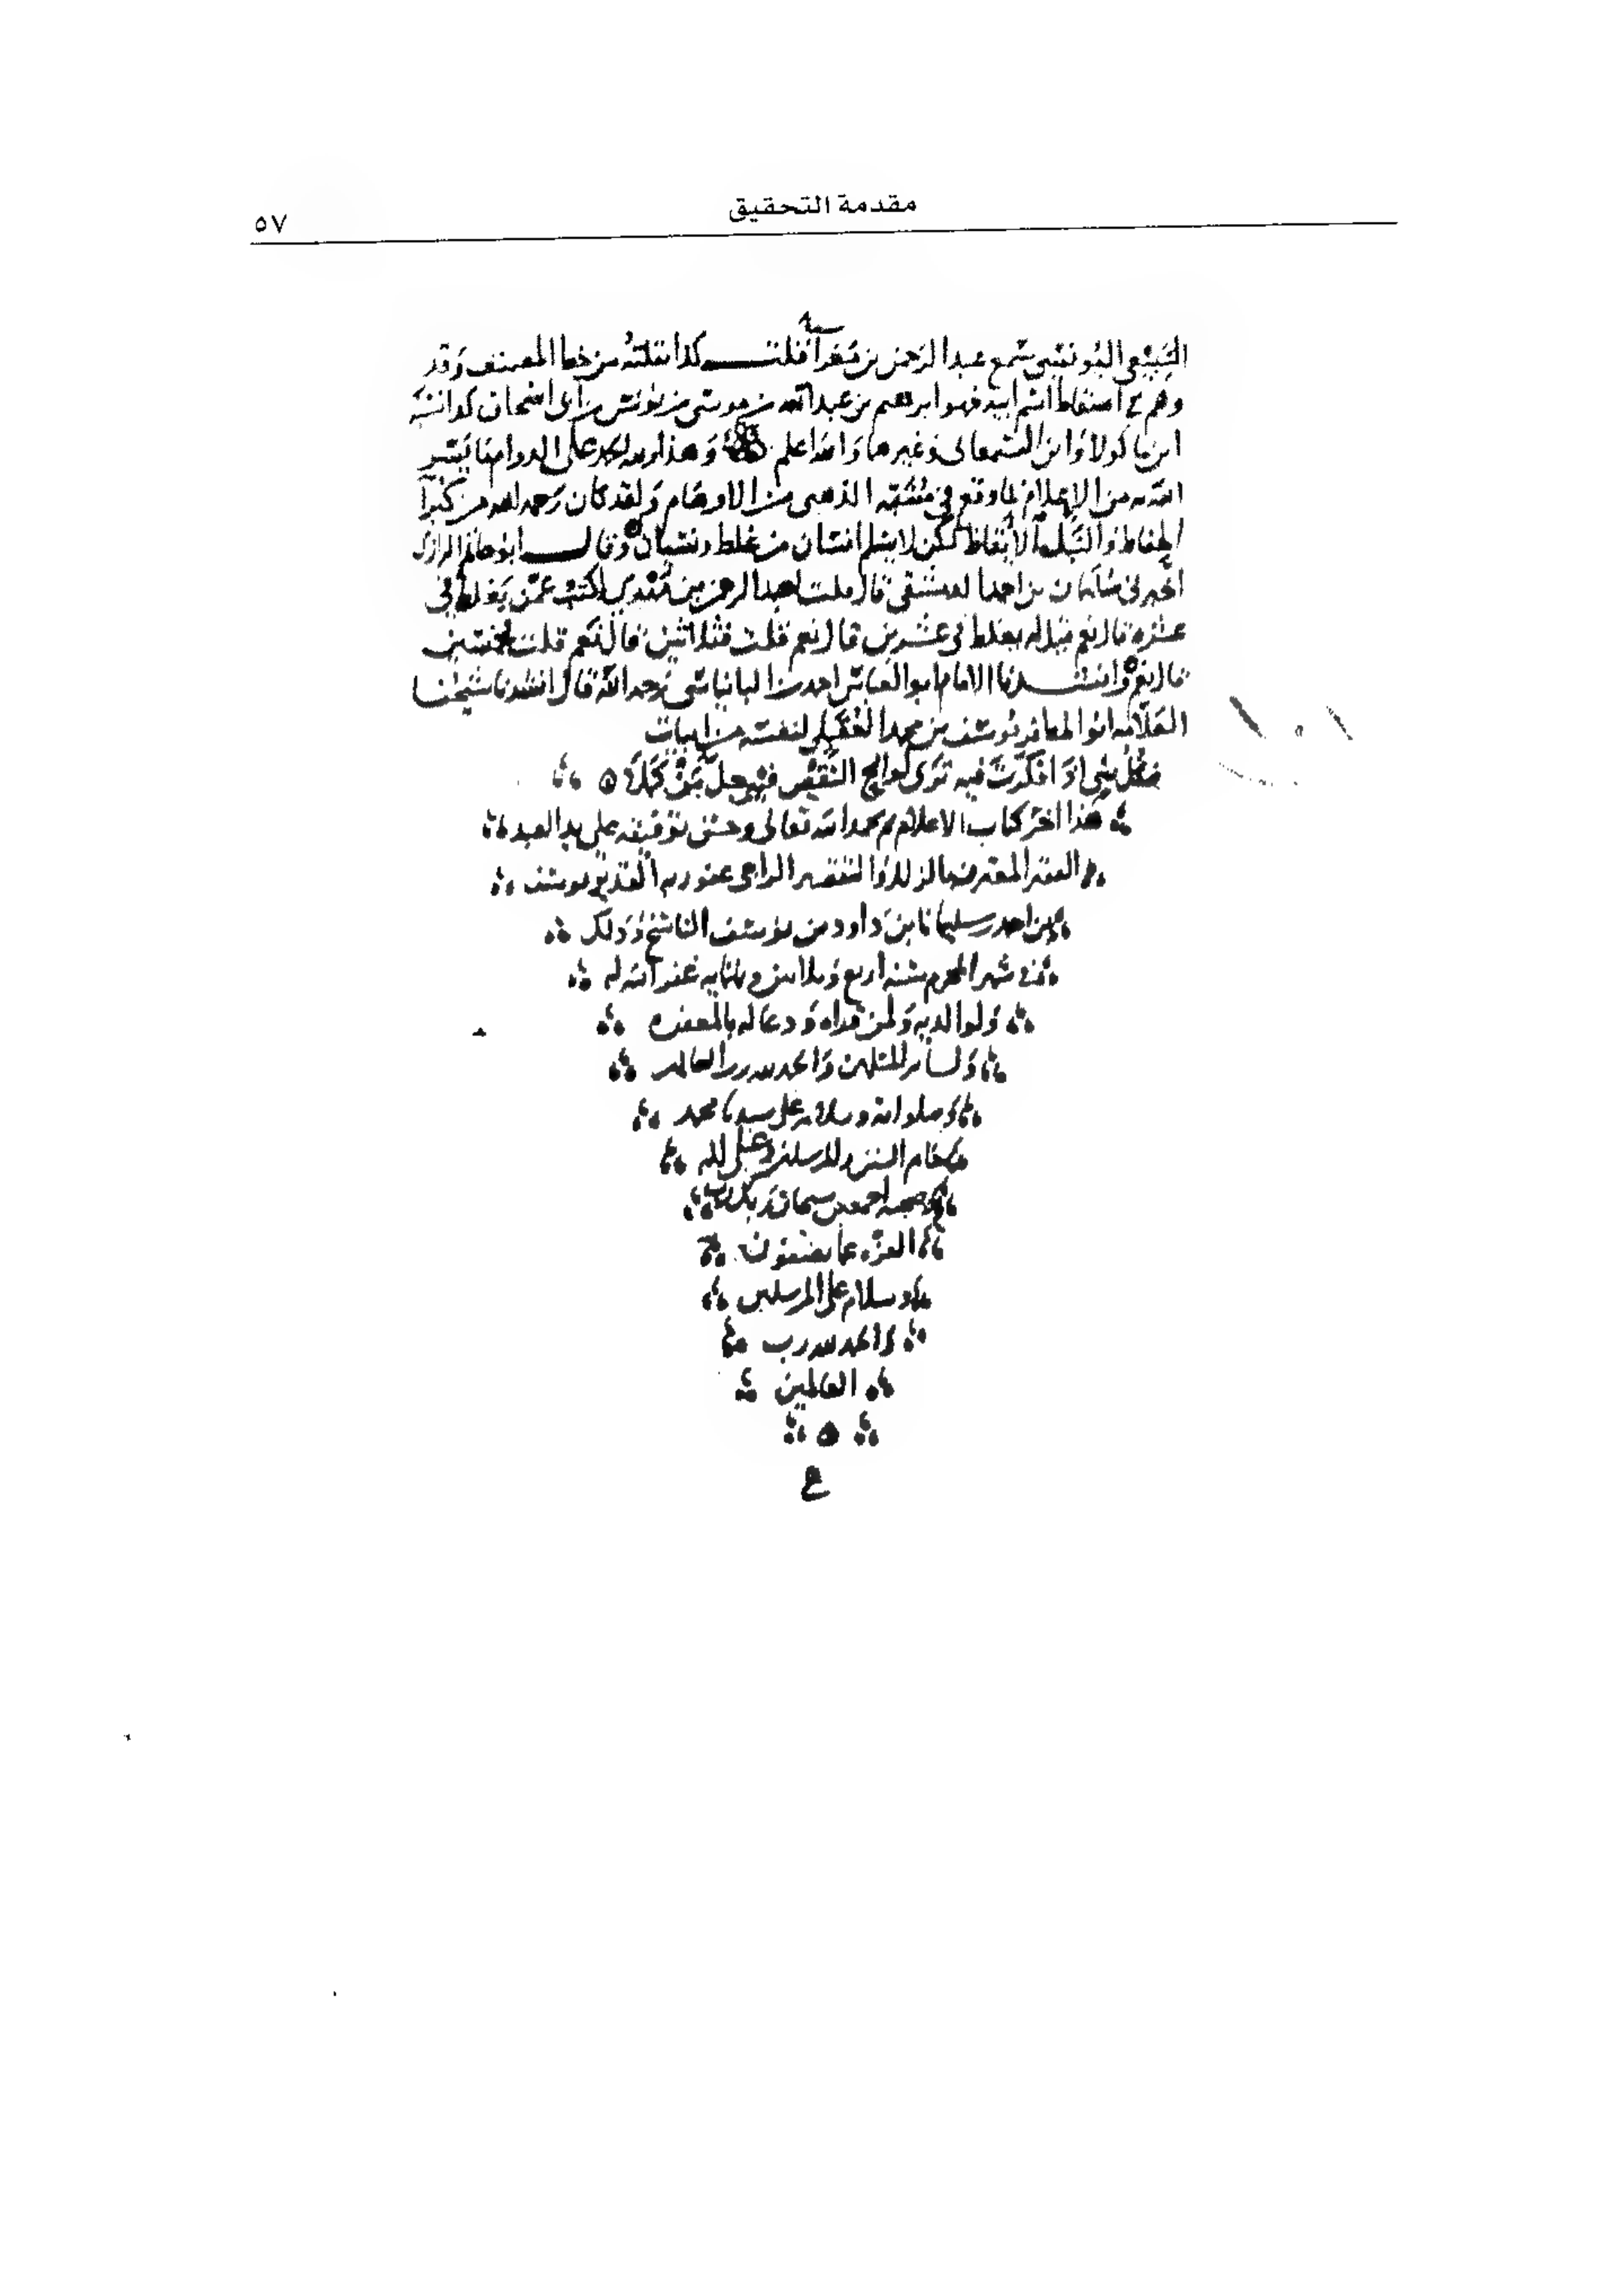 مقدمة التحقيق
٥٧
السبيعي اليونسي سمع عبد الرحمن بن مغرا قلت كذا نقلته من خط المصنف وقد
وهم في اسقاط اسم ابيه فهو ابرهيم بن عبد الله بن موسى بن يونس بن ابي اسحاق كذا نسبه
ابن ماكولا وابن السمعاني وغيرهما والله اعلم وهذا ولله الحمد على الدوام ما يسر
الله من الإعلام لما وقع في مشتبه الذهبي من الاوهام ولقد كان رحمه الله من كبرآ
الحفاظ والنبلآ الأيقاظ لكن لا يسلم انسان من غلط ونسيان وقال ابو حاتم الرازي
اخبرني سليمان بن احمد الدمشقي قال قلت لعبد الرحمن بن مهدي اكتب عمن يغلط في
عشرة قال نعم قيل له يغلط في عشرين قال نعم قلت فثلاثين قال نعم قلت فخمسين
قال نعم وانشدنا الامام ابو العباس احمد رحمه الله قال انشدنا شيخنا
العلامه ابو المظفر يوسف بن محمد لنفسه من ابيات
فكل شي اذا فكرت فيه ترى لوايح النقص فيه جل من كملا
هذا اخر كتاب الاعلام بحمد الله تعالى وحسن توفيقه على يد العبد
الفقير المعترف بالزلل والتقصير الراجي عفو ربه القدير يوسف
بن احمد بن سليمان بن داود بن يوسف الناسخ وذلك
في شهر المحرم سنه اربع وثلاثين وثمانمايه غفر الله له
ولوالديه ولمن قراه ودعا له بالمغفره
ولسائر المسلمين والحمد لله رب العالمين
وصلواته وسلامه على سيدنا محمد
خاتم النبيين والمرسلين وعلى اله
وصحبه اجمعين سبحان ربك رب
العزه عما يصفون
وسلام على المرسلين
والحمد لله رب
العالمين